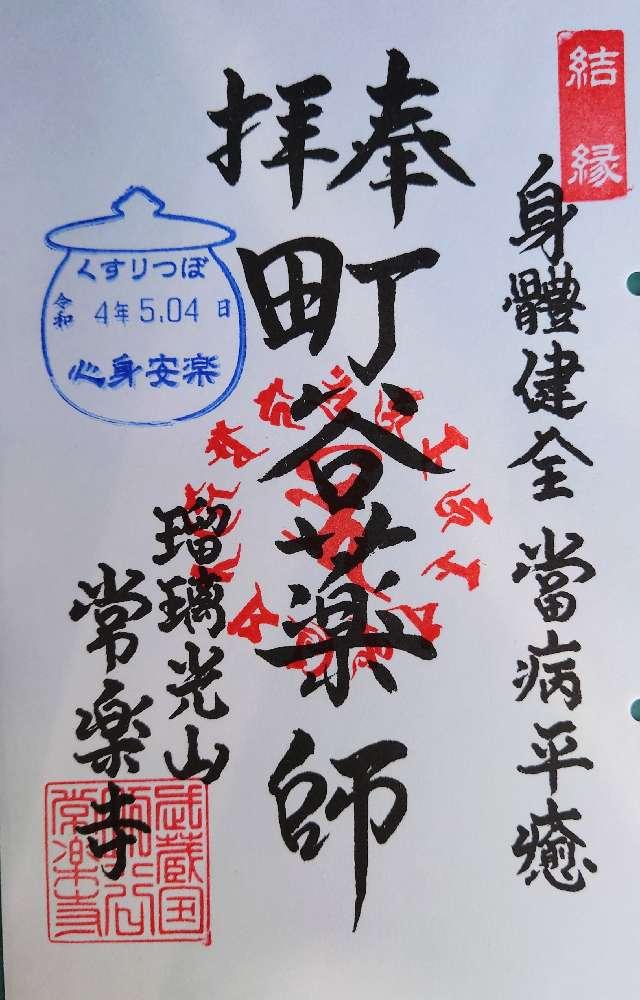 結縁
身體健全 當病平癒
奉拝
町谷薬師
瑠璃光山
常楽寺
くすりつぼ
令和 4年5.04日
心身安楽
武蔵国
町谷
常楽寺